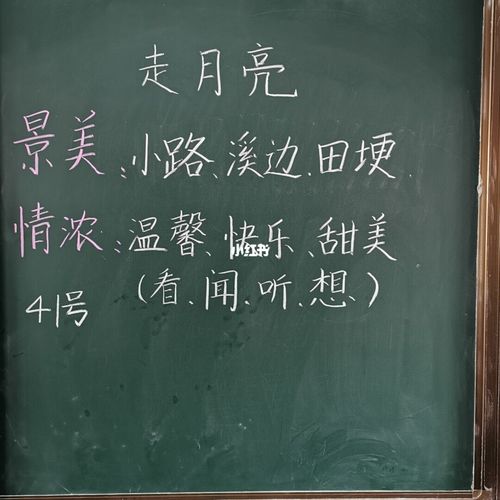 走月亮
景美：小路、溪边、田埂
情浓：温馨、快乐、甜美
（看、闻、听、想、）
41号
小红书